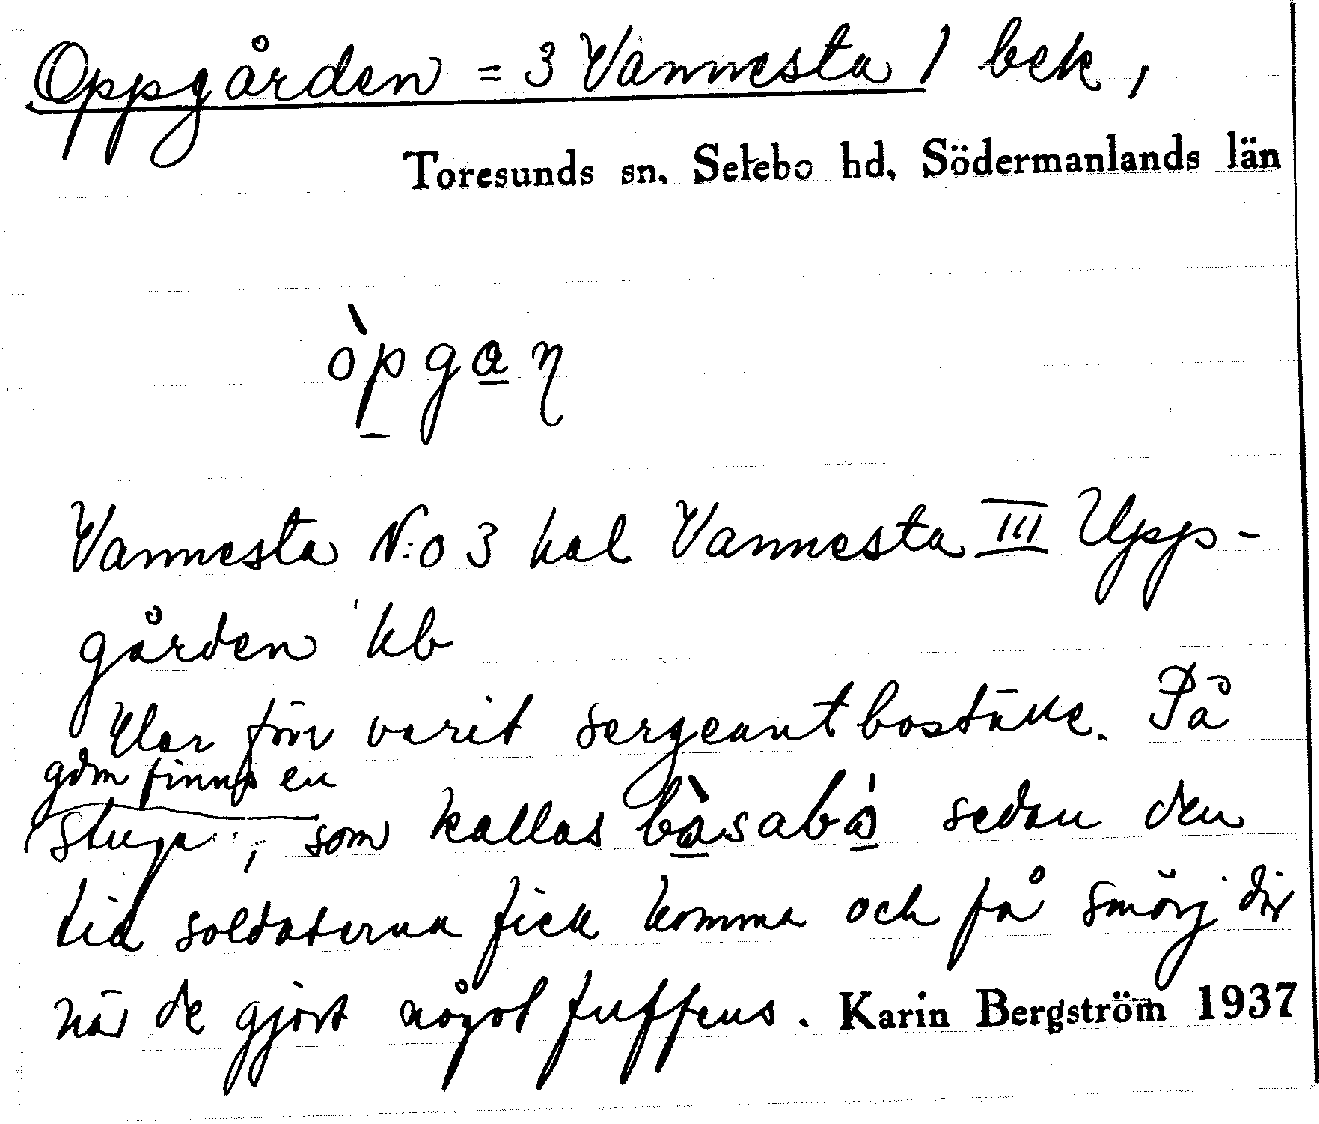 Oppgården = 3 Vannesta / bek,
Toresunds sn. Selebo hd. Södermanlands län
òpgaη
Vannesta N:o 3 kal Vannesta III Upp-
gården kb
Har förr varit sergeantboställe. På
gdn finns en
stuga, som kallas bàsabó sedan den
tid soldaterna fick komma och få smörj där
när de gjort något fuffens. Karin Bergström 1937